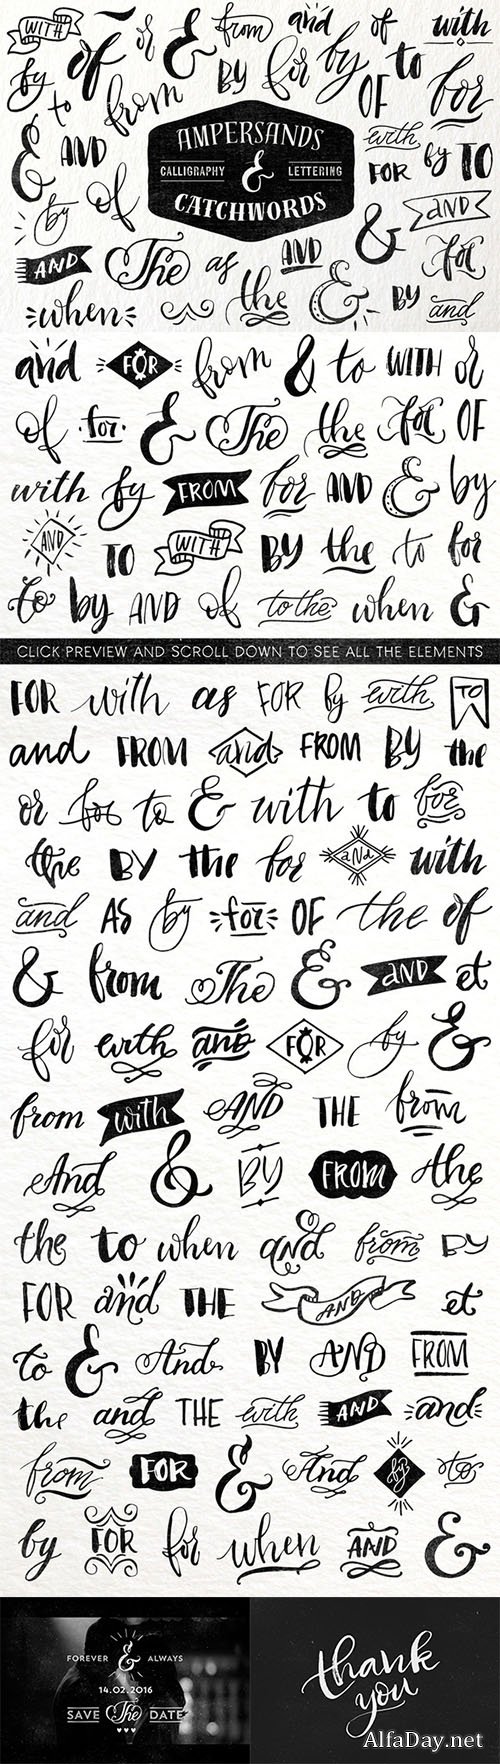 WITH of or & from and of with
by to from BY for by OF to for
& AND of AMPERSANDS with FOR by TO
CALLIGRAPHY & LETTERING
by CATCHWORDS & AND
AND The as AND for
when the & BY and
and FOR from & to WITH or
of for & The the for OF
with by FROM for AND & by
AND TO WITH BY the to for
to by AND of to the when &
CLICK PREVIEW AND SCROLL DOWN TO SEE ALL THE ELEMENTS
FOR with as FOR by with TO
and FROM and FROM BY the
or for to & with to for
the BY the for AND with
and AS by for OF the of
& from The & AND et
for with and FOR by &
from with AND THE from
And & BY FROM the
the to when and from BY
FOR and THE AND et
to & And BY AND FROM
the and THE with AND and
from FOR & And by to
by FOR for when AND &
FOREVER & ALWAYS
14.02.2016
SAVE The DATE
thank
you
AlfaDay.net